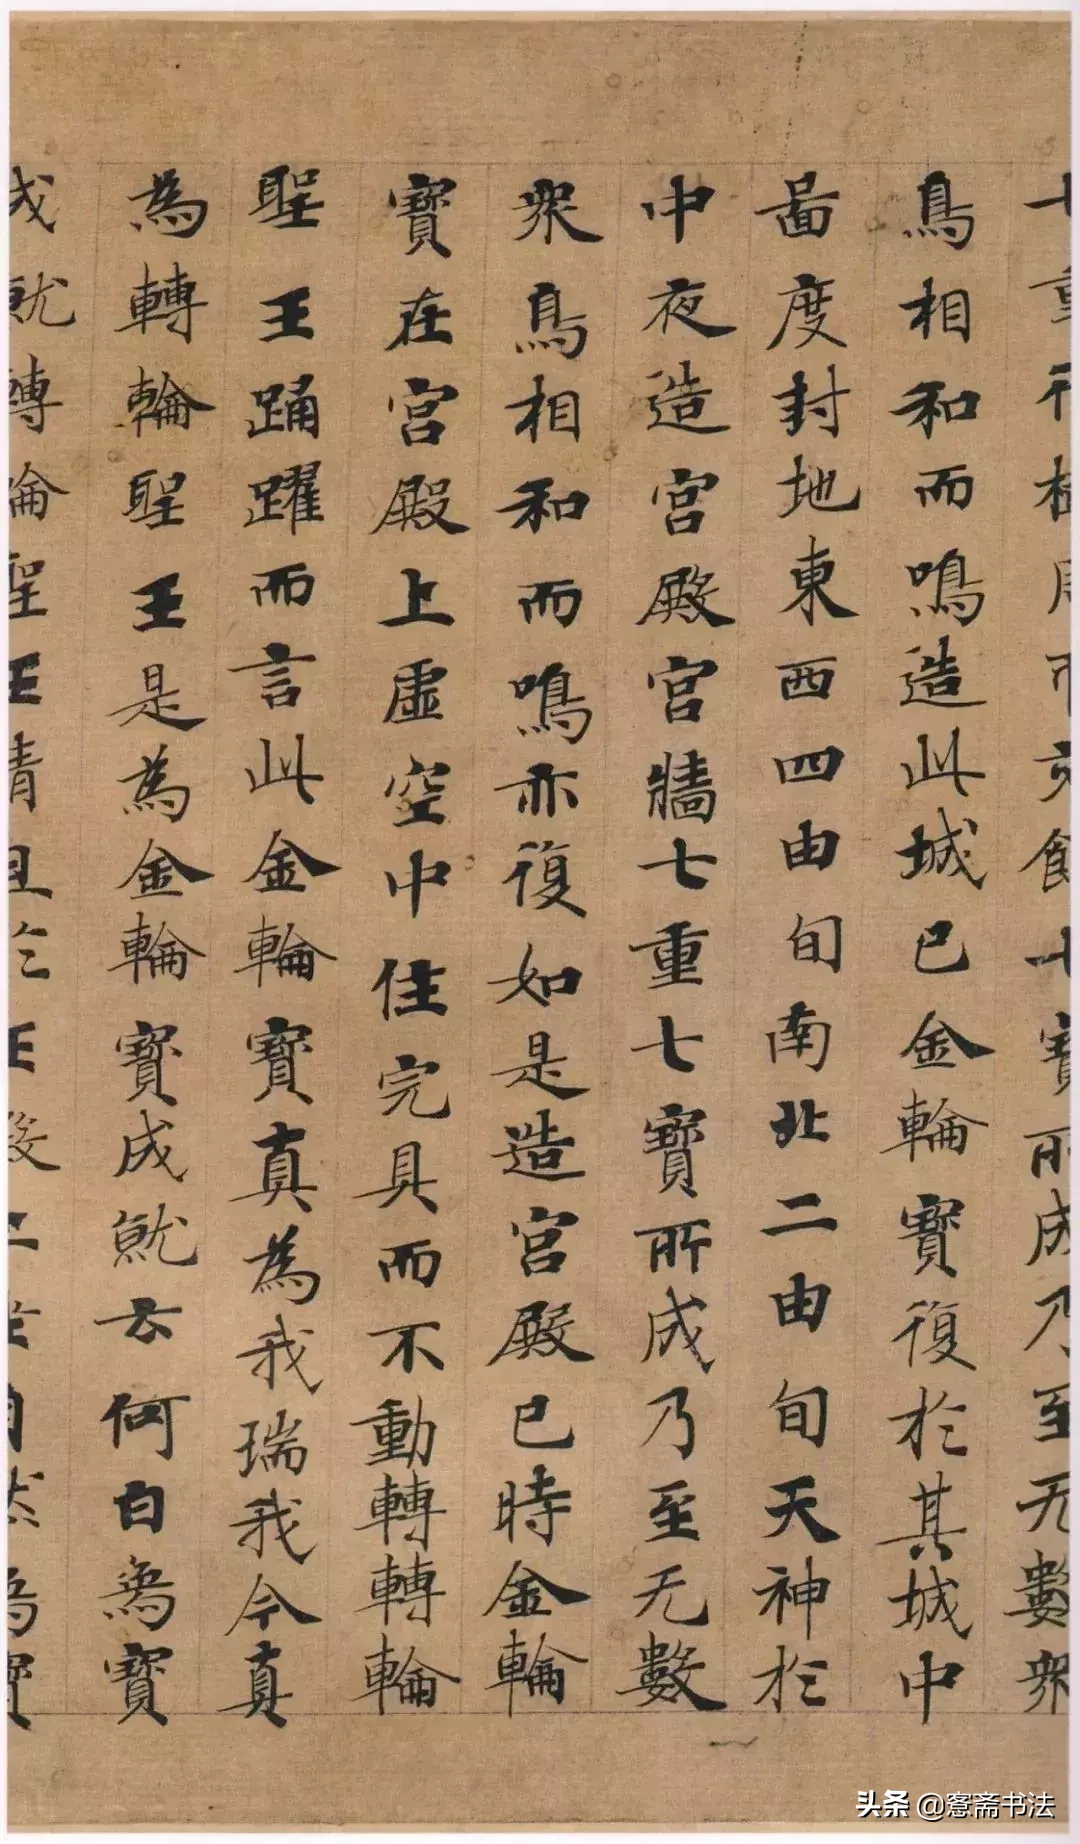 七重行樹周帀交飾七寶所成乃至无數衆
鳥相和而鳴造此城已金輪寶復於其城中
啚度封地東西四由旬南北二由旬天神於
中夜造宮殿宮牆七重七寶所成乃至无數
衆鳥相和而鳴亦復如是造宮殿已時金輪
寶在宮殿上虛空中住完具而不動轉轉輪
聖王踊躍而言此金輪寶真為我瑞我今真
為轉輪聖王是為金輪寶成就云何白象寶
成就轉輪聖王清旦於正殿上坐自然象寶
头条 @窓斋书法